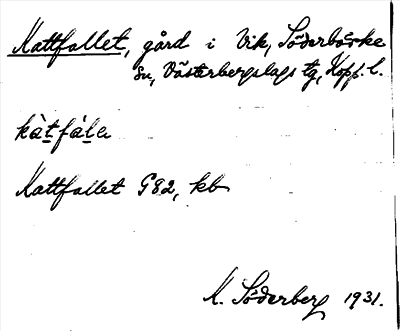 Kattfallet, gård i Vik, Söderbärke
sn, Västerbergslags tg, Kopp. l.
kàt̠fál̠a
Kattfallet G82, kb
M. Söderberg 1931.